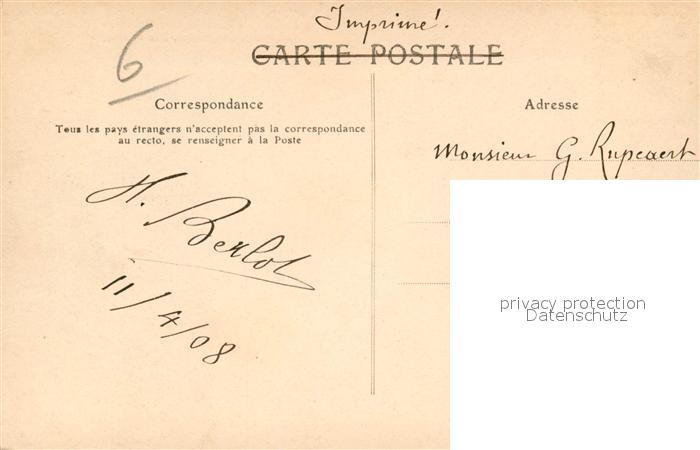 Imprimé.
CARTE POSTALE
6
Correspondance
Tous les pays étrangers n'acceptent pas la correspondance
au recto, se renseigner à la Poste
H. Berlot
11/4/08
Adresse
Monsieur G. Rupcaert
privacy protection
Datenschutz